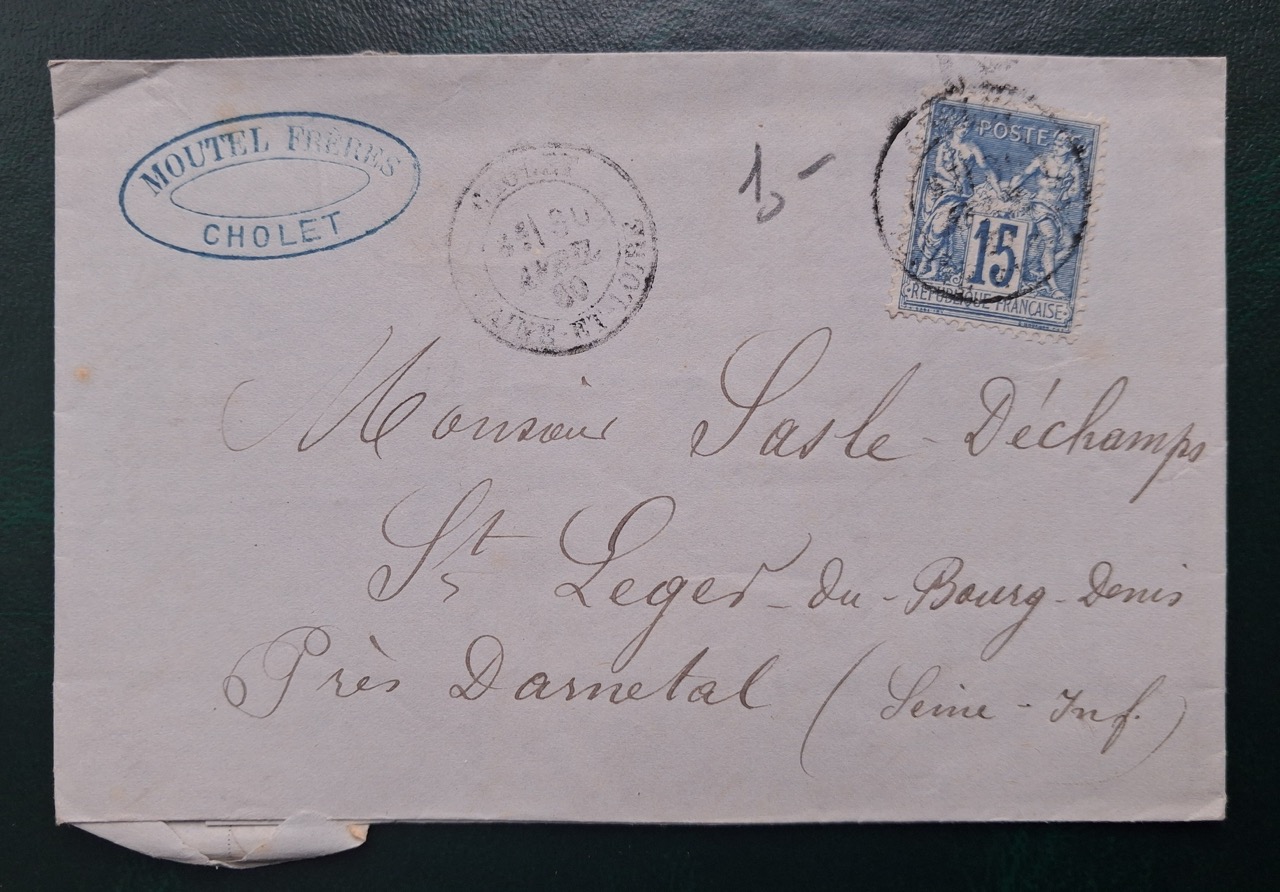 MOUTEL FRÈRES
CHOLET
AVRIL
80
ET-LOIRE
POSTE
15
REPUBLIQUE FRANÇAISE
Monsieur Sasle-Déchamps
St Leger-du-Bourg-Denis
Près Darnetal (Seine-Inf.)